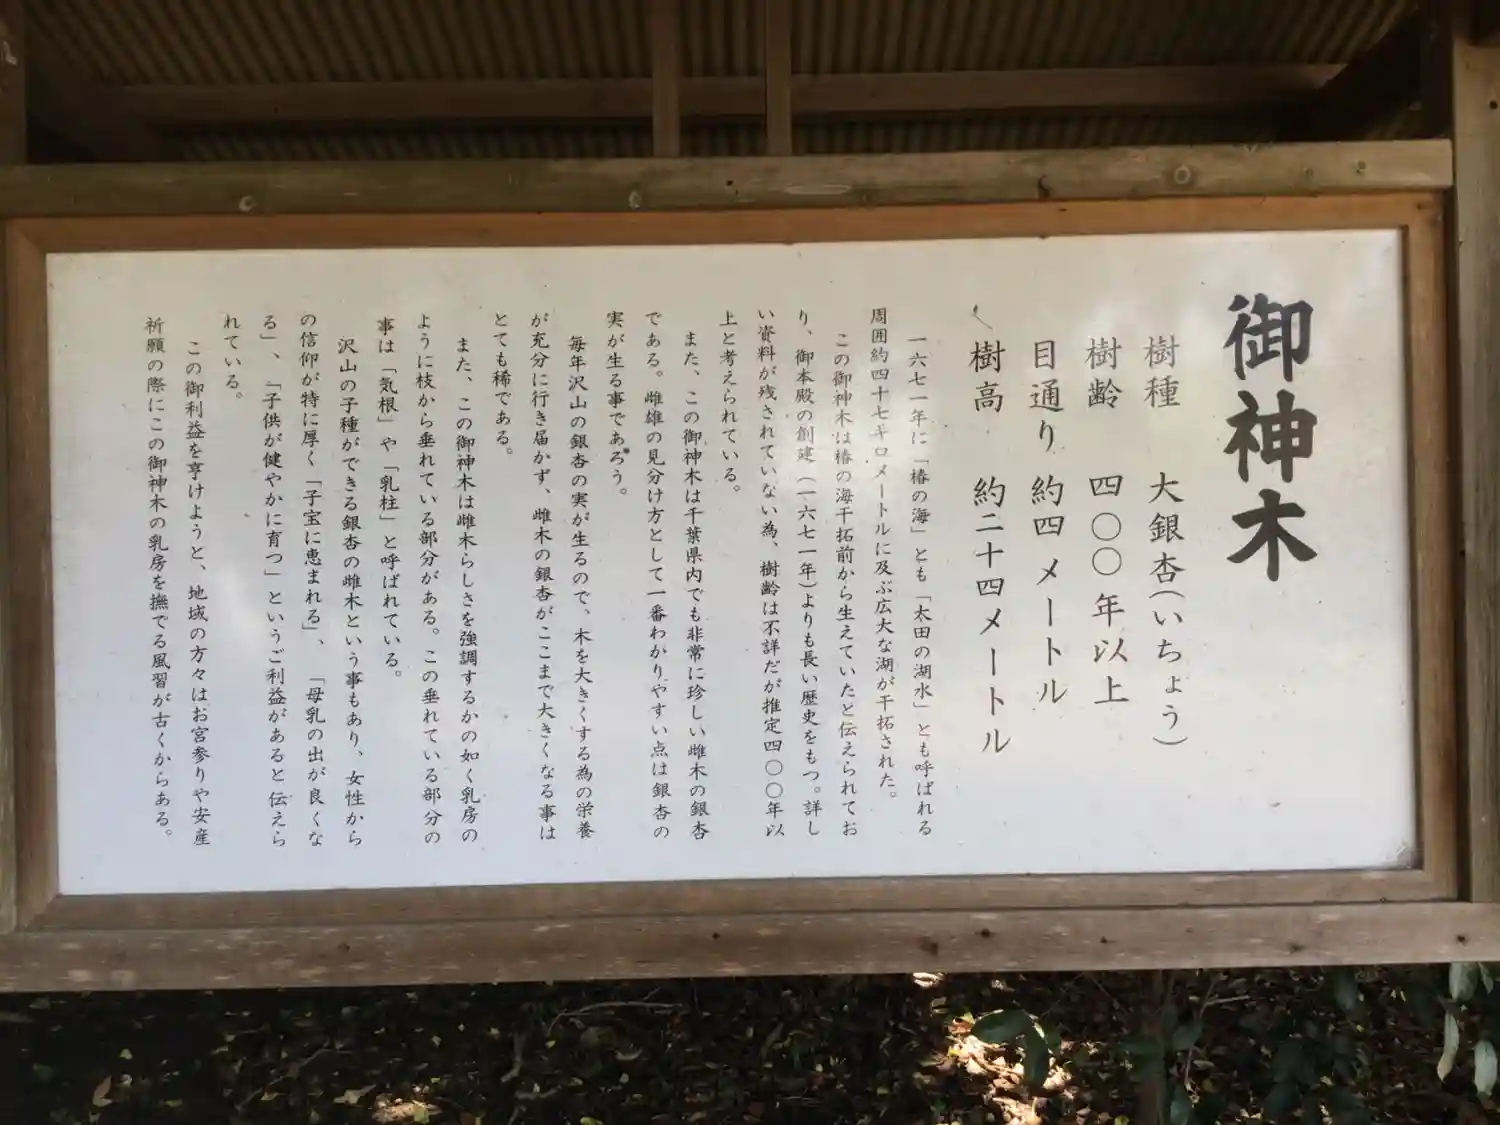 御神木
樹種　大銀杏（いちょう）
樹齢　四〇〇年以上
目通り　約四メートル
樹高　約二十四メートル
一六七一年に「椿の海」とも「太田の湖水」とも呼ばれる
周囲約四十七キロメートルに及ぶ広大な湖が干拓された。
この御神木は椿の海干拓前から生えていたと伝えられてお
り、御本殿の創建（一六七一年）よりも長い歴史をもつ。詳し
い資料が残されていない為、樹齢は不詳だが推定四〇〇年以
上と考えられている。
また、この御神木は千葉県内でも非常に珍しい雌木の銀杏
である。雌雄の見分け方として一番わかりやすい点は銀杏の
実が生る事であろう。
毎年沢山の銀杏の実が生るので、木を大きくする為の栄養
が充分に行き届かず、雌木の銀杏がここまで大きくなる事は
とても稀である。
また、この御神木は雌木らしさを強調するかの如く乳房の
ように枝から垂れている部分がある。この垂れている部分の
事は「気根」や「乳柱」と呼ばれている。
沢山の子種ができる銀杏の雌木という事もあり、女性から
の信仰が特に厚く「子宝に恵まれる」、「母乳の出が良くな
る」、「子供が健やかに育つ」というご利益があると伝えら
れている。
この御利益を享けようと、地域の方々はお宮参りや安産
祈願の際にこの御神木の乳房を撫でる風習が古くからある。